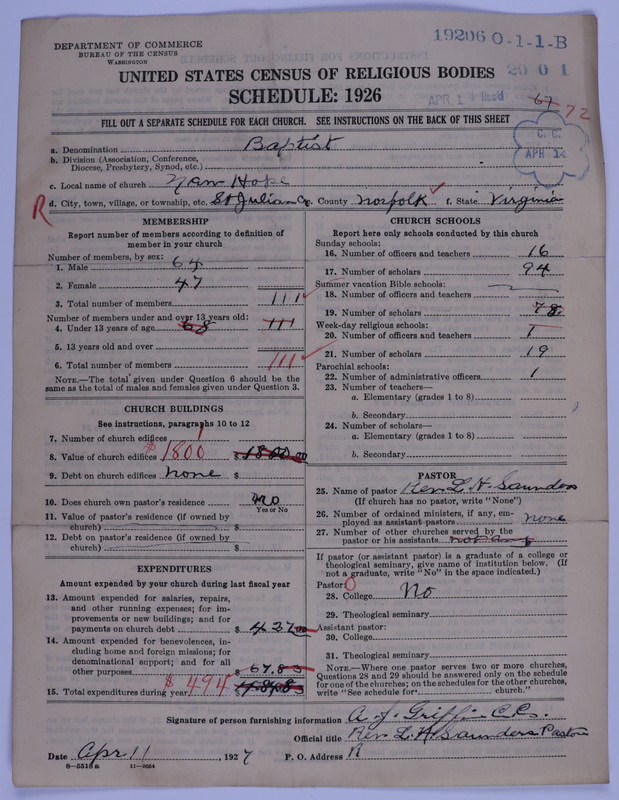 DEPARTMENT OF COMMERCE
BUREAU OF THE CENSUS
WASHINGTON
19206 0-1-1-B
UNITED STATES CENSUS OF RELIGIOUS BODIES
2001
SCHEDULE: 1926
APR 14
67 72
FILL OUT A SEPARATE SCHEDULE FOR EACH CHURCH. SEE INSTRUCTIONS ON THE BACK OF THIS SHEET
C. C.
APR 14
a. Denomination Baptist
b. Division (Association, Conference,
Diocese, Presbytery, Synod, etc.)
c. Local name of church New Hope
R d. City, town, village, or township, etc. St Julian e. County Norfolk f. State Virginia
MEMBERSHIP
Report number of members according to definition of
member in your church
Number of members, by sex:
1. Male 64
2. Female 47
3. Total number of members 111
Number of members under and over 13 years old:
4. Under 13 years of age 68 111
5. 13 years old and over
6. Total number of members 111
NOTE.—The total given under Question 6 should be the
same as the total of males and females given under Question 3.
CHURCH BUILDINGS
See instructions, paragraphs 10 to 12
7. Number of church edifices 1
8. Value of church edifices $1800 1800.00
9. Debt on church edifices none $
10. Does church own pastor's residence no
Yes or No
11. Value of pastor's residence (if owned by
church) $
12. Debt on pastor's residence (if owned by
church) $
EXPENDITURES
Amount expended by your church during last fiscal year
13. Amount expended for salaries, repairs,
and other running expenses; for im-
provements or new buildings; and for
payments on church debt $ 427.00
14. Amount expended for benevolences, in-
cluding home and foreign missions; for
denominational support; and for all
other purposes $ 67.85
15. Total expenditures during year $494
CHURCH SCHOOLS
Report here only schools conducted by this church
Sunday schools:
16. Number of officers and teachers 16
17. Number of scholars 94
Summer vacation Bible schools:
18. Number of officers and teachers
19. Number of scholars 78
Week-day religious schools:
20. Number of officers and teachers 1
21. Number of scholars 19
Parochial schools:
22. Number of administrative officers 1
23. Number of teachers—
a. Elementary (grades 1 to 8)
b. Secondary
24. Number of scholars—
a. Elementary (grades 1 to 8)
b. Secondary
PASTOR
25. Name of pastor Rev. L. H. Saunders
(If church has no pastor, write "None")
26. Number of ordained ministers, if any, em-
ployed as assistant pastors none
27. Number of other churches served by the
pastor or his assistants not any
If pastor (or assistant pastor) is a graduate of a college or
theological seminary, give name of institution below. (If
not a graduate, write "No" in the space indicated.)
Pastor: 0
28. College No
29. Theological seminary
Assistant pastor:
30. College
31. Theological seminary
NOTE.—Where one pastor serves two or more churches,
Questions 28 and 29 should be answered only on the schedule
for one of the churches; on the schedules for the other churches,
write "See schedule for church."
Signature of person furnishing information A. J. Griffin C.C.
Official title Rev. L. H. Saunders Pastor
Date Apr 11, 1927 P. O. Address R
8—5518a 11—9054